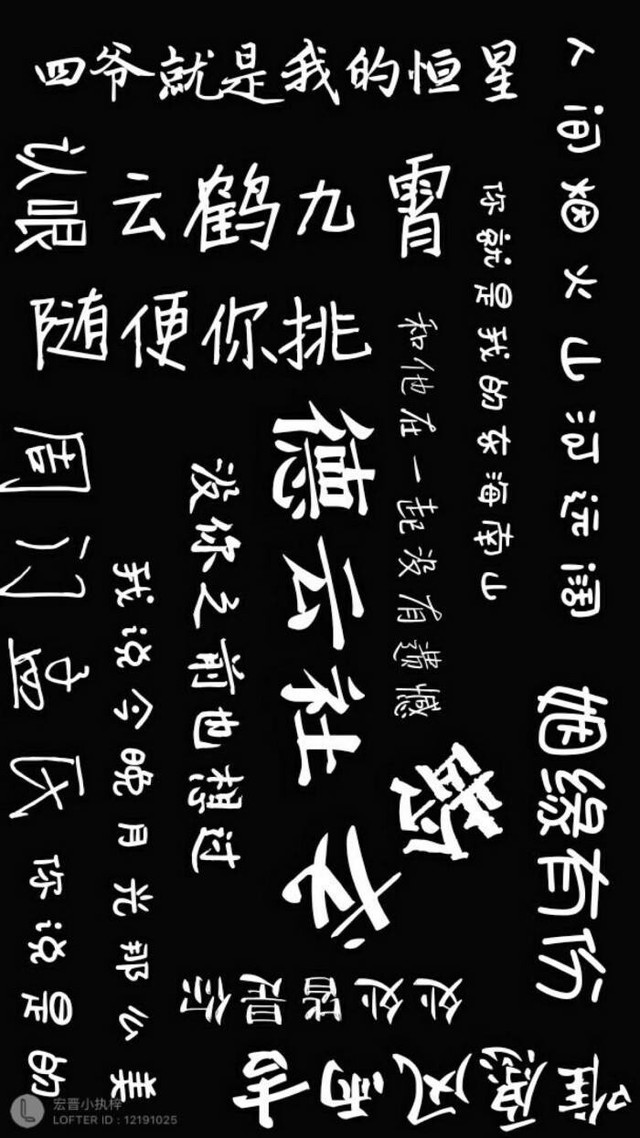 四爷就是我的恒星
人间烟火山河远阔
云鹤九霄
随便你挑
你就是我的东海南山
和他在一起没有遗憾
德云社
没你之前也想过
我说今晚月光那么美
你说是的
周门孟氏
姻缘有份
处处皆是你
愿风雨
宏晋小执梓
LOFTER ID : 12191025